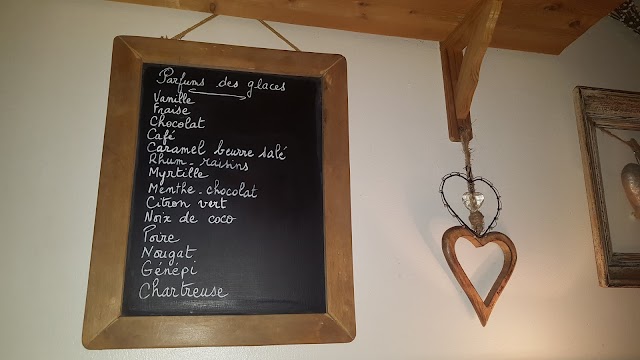 Parfums des glaces
Vanille
Fraise
Chocolat
Café
Caramel beurre salé
Rhum-raisins
Myrtille
Menthe-chocolat
Citron vert
Noix de coco
Poire
Nougat
Génépi
Chartreuse